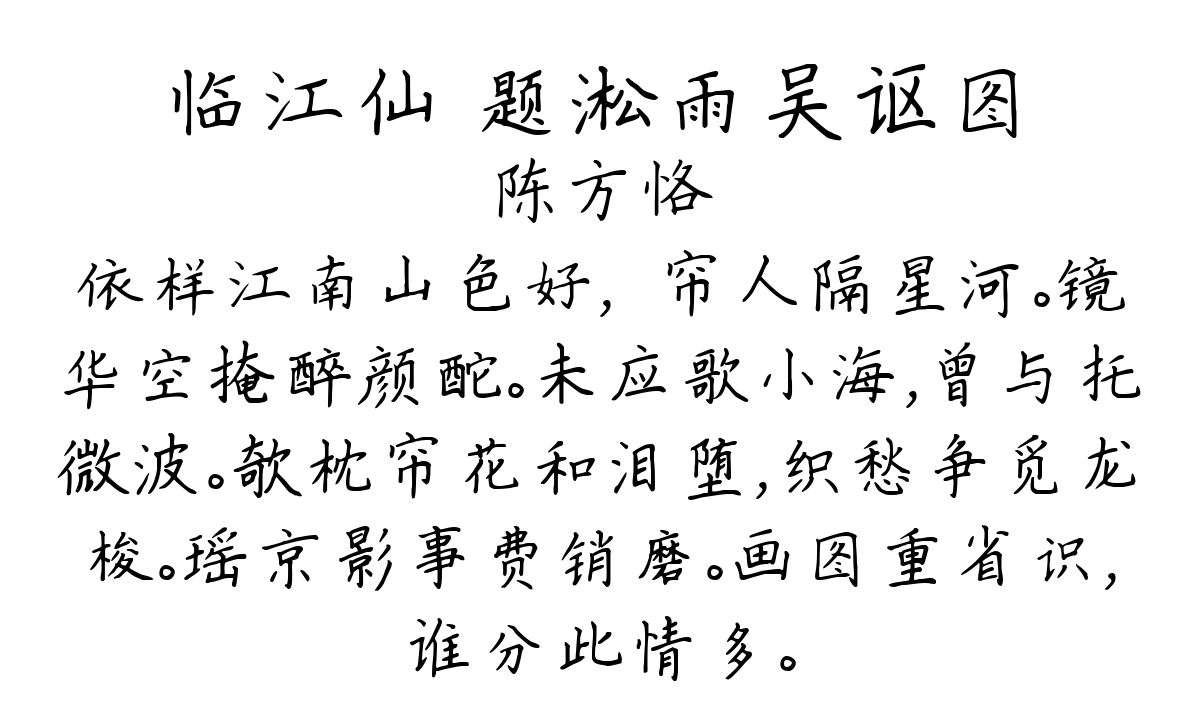 临江仙 题淞雨吴讴图
陈方恪
依样江南山色好，帘人隔星河。镜
华空掩醉颜酡。未应歌小海，曾与托
微波。欹枕帘花和泪堕，织愁争觅龙
梭。瑶京影事费销磨。画图重省识，
谁分此情多。